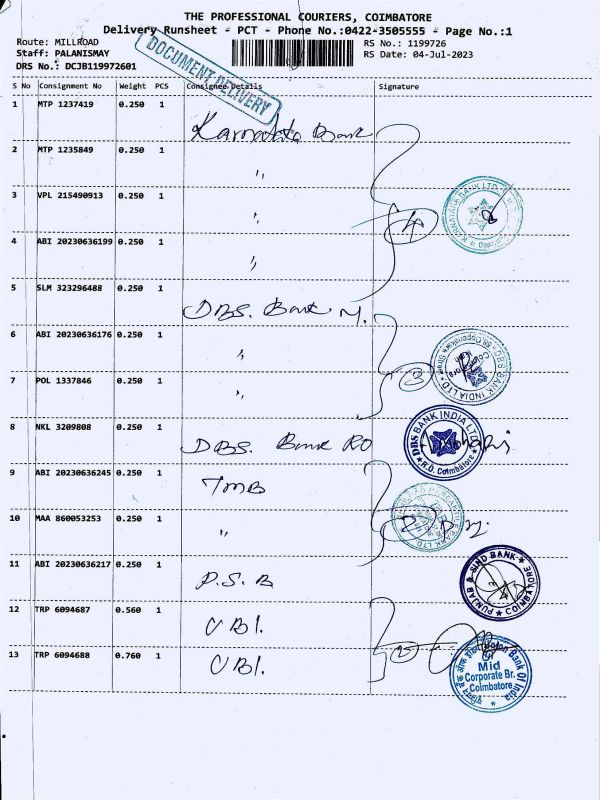 THE PROFESSIONAL COURIERS, COIMBATORE
Delivery Runsheet - PCT - Phone No.:0422-3505555 - Page No.:1
Route: MILLROAD
RS No.: 1199726
Staff: PALANISMAY
RS Date: 04-Jul-2023
DRS No.: DCJB119972601
DOCUMENT DELIVERY
S No Consignment No Weight PCS Consignee Details Signature
1 MTP 1237419 0.250 1 Karnataka Bank
2 MTP 1235849 0.250 1 "
3 VPL 215490913 0.250 1 "
4 ABI 20230636199 0.250 1 "
4
5 SLM 323296488 0.250 1 DBS. Bank M.
6 ABI 20230636176 0.250 1 "
7 POL 1337846 0.250 1 "
3
DBS BANK INDIA LTD
8 NKL 3209808 0.250 1 DBS. Bank RO
DBS BANK INDIA LTD
R.O. Coimbatore
9 ABI 20230636245 0.250 1 TMB
10 MAA 860053253 0.250 1 "
2
11 ABI 20230636217 0.250 1 P.S.B
PUNJAB & SIND BANK
COIMBATORE
12 TRP 6094687 0.560 1 UBI.
13 TRP 6094688 0.760 1 UBI.
2
Union Bank Of India
Mid
Corporate Br.
Coimbatore